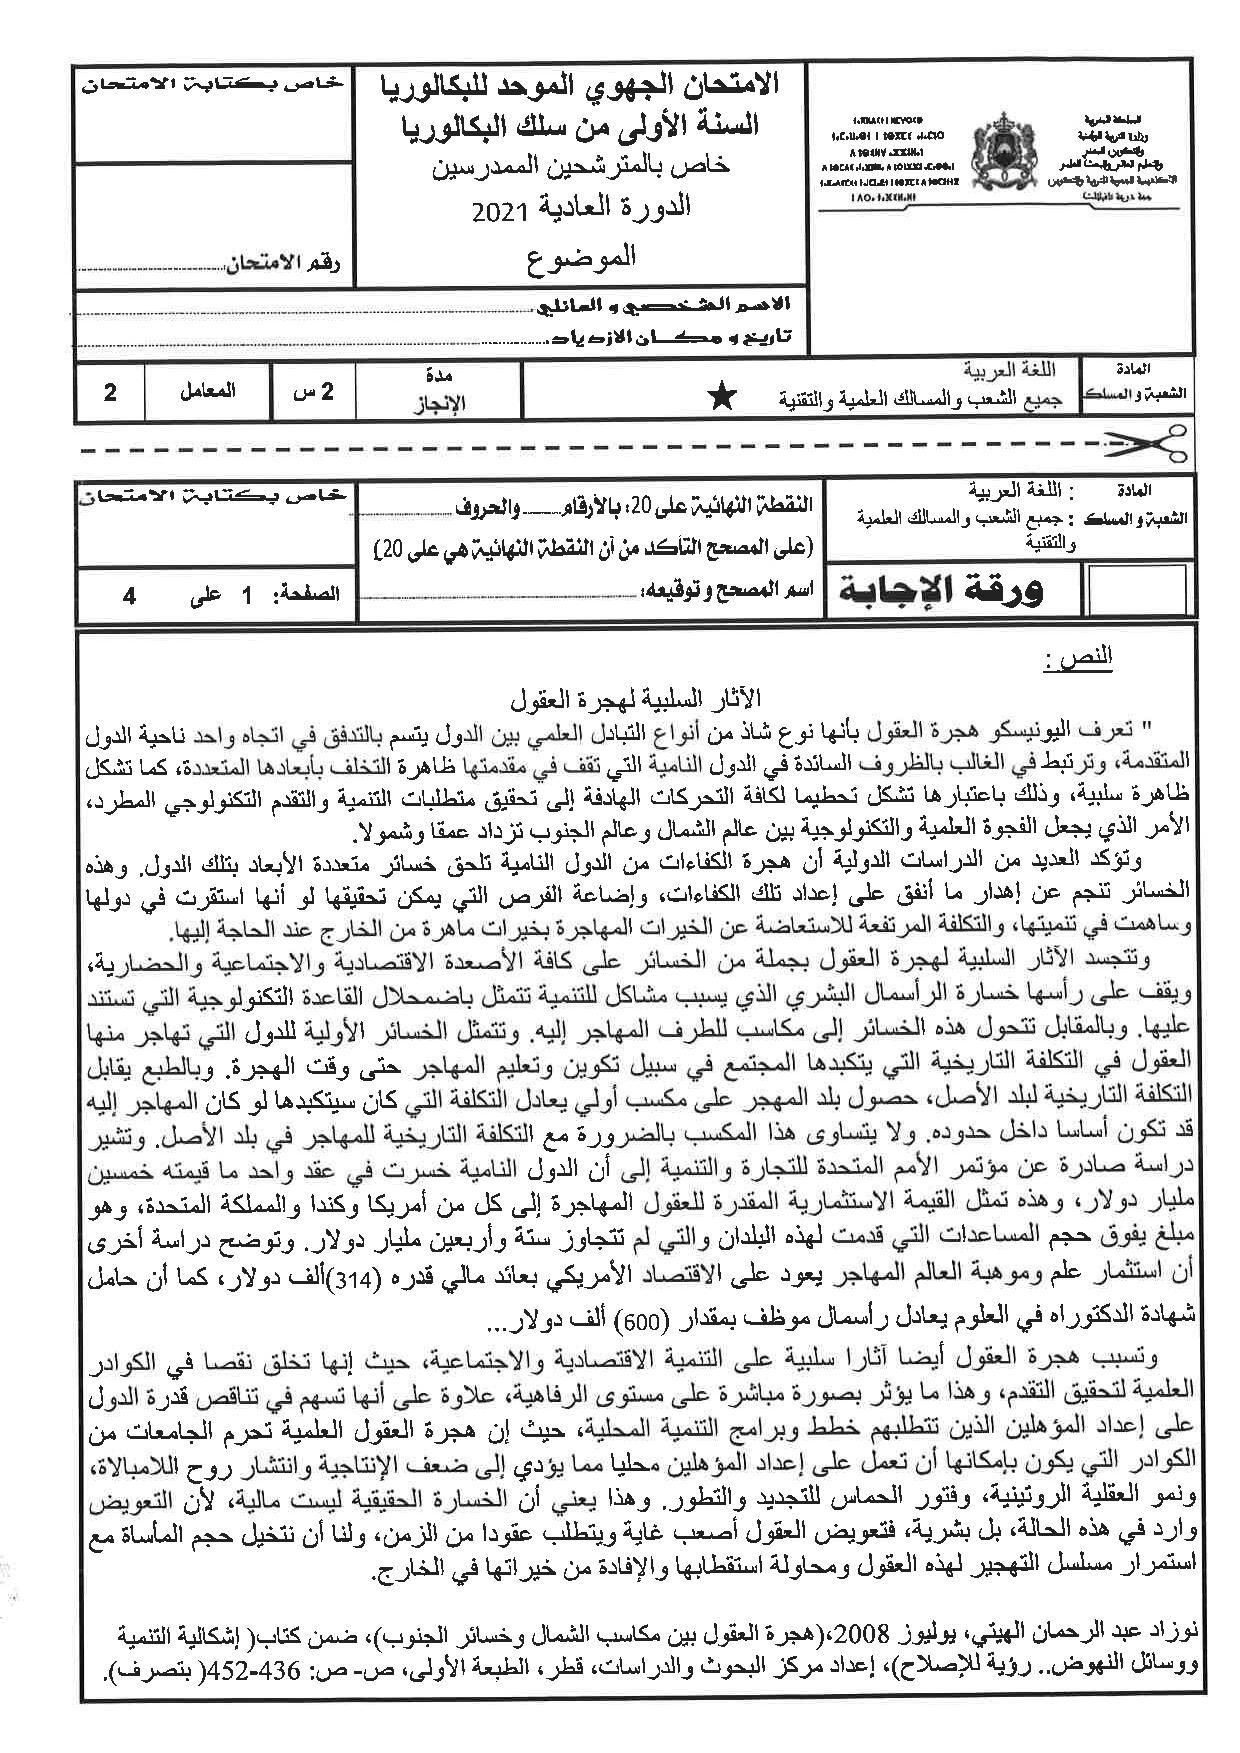 المملكة المغربية
وزارة التربية الوطنية
والتكوين المهني
والتعليم العالي والبحث العلمي
الأكاديمية الجهوية للتربية والتكوين
جهة درعة تافيلالت
الامتحان الجهوي الموحد للبكالوريا
السنة الأولى من سلك البكالوريا
خاص بالمترشحين الممدرسين
الدورة العادية 2021
الموضوع
خاص بكتابة الامتحان
رقم الامتحان
الاسم الشخصي و العائلي
تاريخ و مكان الازدياد
المادة
اللغة العربية
الشعبة و المسلك
جميع الشعب والمسالك العلمية والتقنية
مدة الإنجاز
2 س
المعامل
2
المادة : اللغة العربية
الشعبة و المسلك : جميع الشعب والمسالك العلمية والتقنية
النقطة النهائية على 20: بالأرقام والحروف
(على المصحح التأكد من أن النقطة النهائية هي على 20)
خاص بكتابة الامتحان
ورقة الإجابة
اسم المصحح و توقيعه:
الصفحة: 1 على 4
النص :
الآثار السلبية لهجرة العقول
" تعرف اليونيسكو هجرة العقول بأنها نوع شاذ من أنواع التبادل العلمي بين الدول يتسم بالتدفق في اتجاه واحد ناحية الدول
المتقدمة، وترتبط في الغالب بالظروف السائدة في الدول النامية التي تقف في مقدمتها ظاهرة التخلف بأبعادها المتعددة، كما تشكل
ظاهرة سلبية، وذلك باعتبارها تشكل تحطيما لكافة التحركات الهادفة إلى تحقيق متطلبات التنمية والتقدم التكنولوجي المطرد،
الأمر الذي يجعل الفجوة العلمية والتكنولوجية بين عالم الشمال وعالم الجنوب تزداد عمقا وشمولا.
وتؤكد العديد من الدراسات الدولية أن هجرة الكفاءات من الدول النامية تلحق خسائر متعددة الأبعاد بتلك الدول. وهذه
الخسائر تنجم عن إهدار ما أنفق على إعداد تلك الكفاءات، وإضاعة الفرص التي يمكن تحقيقها لو أنها استقرت في دولها
وساهمت في تنميتها، والتكلفة المرتفعة للاستعاضة عن الخبرات المهاجرة بخبرات ماهرة من الخارج عند الحاجة إليها.
وتتجسد الآثار السلبية لهجرة العقول بجملة من الخسائر على كافة الأصعدة الاقتصادية والاجتماعية والحضارية،
ويقف على رأسها خسارة الرأسمال البشري الذي يسبب مشاكل للتنمية تتمثل باضمحلال القاعدة التكنولوجية التي تستند
عليها. وبالمقابل تتحول هذه الخسائر إلى مكاسب للطرف المهاجر إليه. وتتمثل الخسائر الأولية للدول التي تهاجر منها
العقول في التكلفة التاريخية التي يتكبدها المجتمع في سبيل تكوين وتعليم المهاجر حتى وقت الهجرة. وبالطبع يقابل
التكلفة التاريخية لبلد الأصل، حصول بلد المهجر على مكسب أولي يعادل التكلفة التي كان سيتكبدها لو كان المهاجر إليه
قد تكون أساسا داخل حدوده. ولا يتساوى هذا المكسب بالضرورة مع التكلفة التاريخية للمهاجر في بلد الأصل. وتشير
دراسة صادرة عن مؤتمر الأمم المتحدة للتجارة والتنمية إلى أن الدول النامية خسرت في عقد واحد ما قيمته خمسين
مليار دولار، وهذه تمثل القيمة الاستثمارية المقدرة للعقول المهاجرة إلى كل من أمريكا وكندا والمملكة المتحدة، وهو
مبلغ يفوق حجم المساعدات التي قدمت لهذه البلدان والتي لم تتجاوز ستة وأربعين مليار دولار. وتوضح دراسة أخرى
أن استثمار علم وموهبة العالم المهاجر يعود على الاقتصاد الأمريكي بعائد مالي قدره (314)ألف دولار، كما أن حامل
شهادة الدكتوراه في العلوم يعادل رأسمال موظف بمقدار (600) ألف دولار...
وتسبب هجرة العقول أيضا آثارا سلبية على التنمية الاقتصادية والاجتماعية، حيث إنها تخلق نقصا في الكوادر
العلمية لتحقيق التقدم، وهذا ما يؤثر بصورة مباشرة على مستوى الرفاهية، علاوة على أنها تسهم في تناقص قدرة الدول
على إعداد المؤهلين الذين تتطلبهم خطط وبرامج التنمية المحلية، حيث إن هجرة العقول العلمية تحرم الجامعات من
الكوادر التي يكون بإمكانها أن تعمل على إعداد المؤهلين محليا مما يؤدي إلى ضعف الإنتاجية وانتشار روح اللامبالاة،
ونمو العقلية الروتينية، وفتور الحماس للتجديد والتطور. وهذا يعني أن الخسارة الحقيقية ليست مالية، لأن التعويض
وارد في هذه الحالة، بل بشرية، فتعويض العقول أصعب غاية ويتطلب عقودا من الزمن، ولنا أن نتخيل حجم المأساة مع
استمرار مسلسل التهجير لهذه العقول ومحاولة استقطابها والإفادة من خيراتها في الخارج.
نوزاد عبد الرحمان الهيتي، يوليوز 2008،(هجرة العقول بين مكاسب الشمال وخسائر الجنوب)، ضمن كتاب( إشكالية التنمية
ووسائل النهوض.. رؤية للإصلاح)، إعداد مركز البحوث والدراسات، قطر، الطبعة الأولى، ص- ص: 436-452( بتصرف).